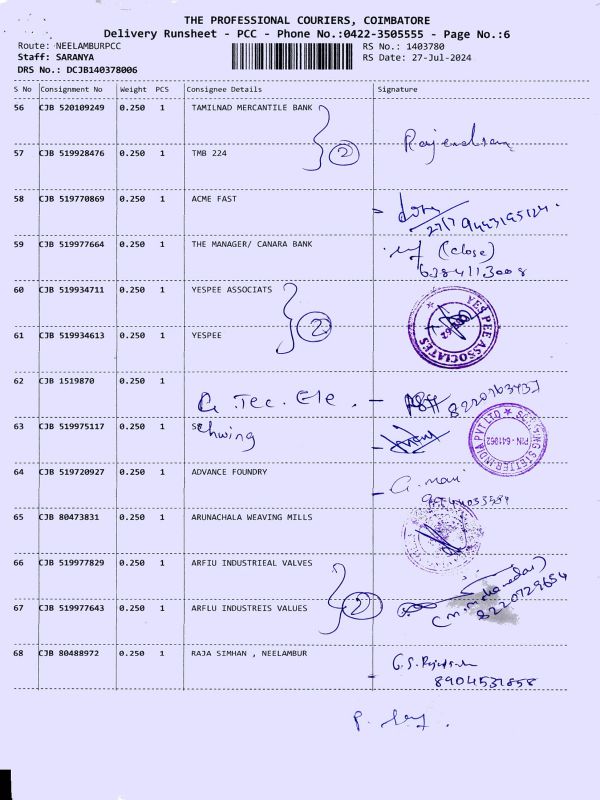 THE PROFESSIONAL COURIERS, COIMBATORE
Delivery Runsheet - PCC - Phone No.:0422-3505555 - Page No.:6
Route: NEELAMBURPCC
RS No.: 1403780
Staff: SARANYA
RS Date: 27-Jul-2024
DRS No.: DCJB140378006
S No Consignment No Weight PCS Consignee Details Signature
56 CJB 520109249 0.250 1 TAMILNAD MERCANTILE BANK
2 Rajendran
57 CJB 519928476 0.250 1 TMB 224
58 CJB 519770869 0.250 1 ACME FAST
27/7 9443195124.
59 CJB 519977664 0.250 1 THE MANAGER/ CANARA BANK (close)
6384113008
60 CJB 519934711 0.250 1 YESPEE ASSOCIATS
2 YES PEE ASSOCIATES
61 CJB 519934613 0.250 1 YESPEE
62 CJB 1519870 0.250 1
G. Tec. Ele. - 8220763437
63 CJB 519975117 0.250 1 Schwing
SCHWING STETTER INDIA PVT LTD PIN - 641062
64 CJB 519720927 0.250 1 ADVANCE FOUNDRY - G. mani
65 CJB 80473831 0.250 1 ARUNACHALA WEAVING MILLS
66 CJB 519977829 0.250 1 ARFIU INDUSTRIEAL VALVES
2
67 CJB 519977643 0.250 1 ARFLU INDUSTREIS VALUES
8220729654
68 CJB 80488972 0.250 1 RAJA SIMHAN , NEELAMBUR G.S.
8904531858
P.